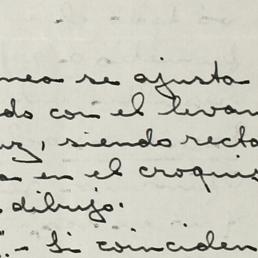 nea se ajusta
do con el levan
uz, siendo recta
a en el croquis
dibujo.
". - Si coinciden